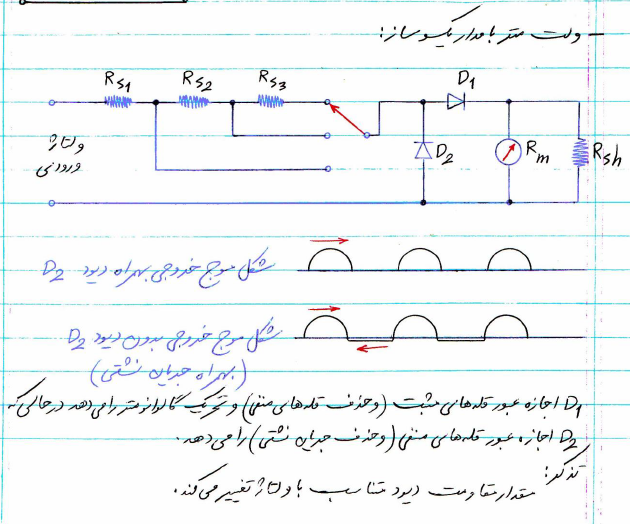 - ولت متر با مدار یکسو ساز:
RS1 RS2 RS3 D1
ولتاژ
ورودی
D2 Rm Rsh
شکل موج خروجی بهمراه دیود D2
شکل موج خروجی بدون دیود D2
(بهمراه جریان نشتی)
D1 اجازه عبور قله‌های مثبت (و حذف قله‌های منفی) و تحریک گالوانومتر را می دهد در حالی که
D2 اجازه عبور قله‌های منفی (و حذف جریان نشتی) را می دهد.
تذکر:
مقدار مقاومت دیود متناسب با ولتاژ تغییر می کند.